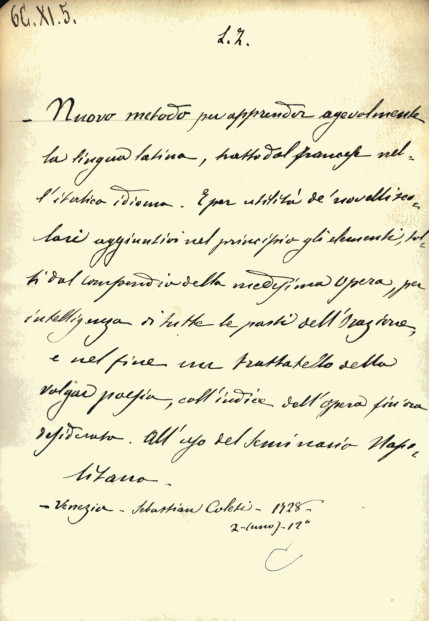 6C.XI.5.
L.Z.
- Nuovo metodo per apprender agevolmente
la lingua latina, tratto dal francese nel-
l'italico idioma. E per utilità de' novelli sco-
lari aggiuntivi nel principio gli elementi, tol-
ti dal compendio della medesima opera, per
intelligenza di tutte le parti dell'Orazione,
e nel fine un trattatello della
volgar poesia, coll'indice dell'opera finora
desiderato. All'uso del Seminario Napo-
litano -
- Venezia - Sebastian Coleti - 1728 -
2 - (uno) - 12°